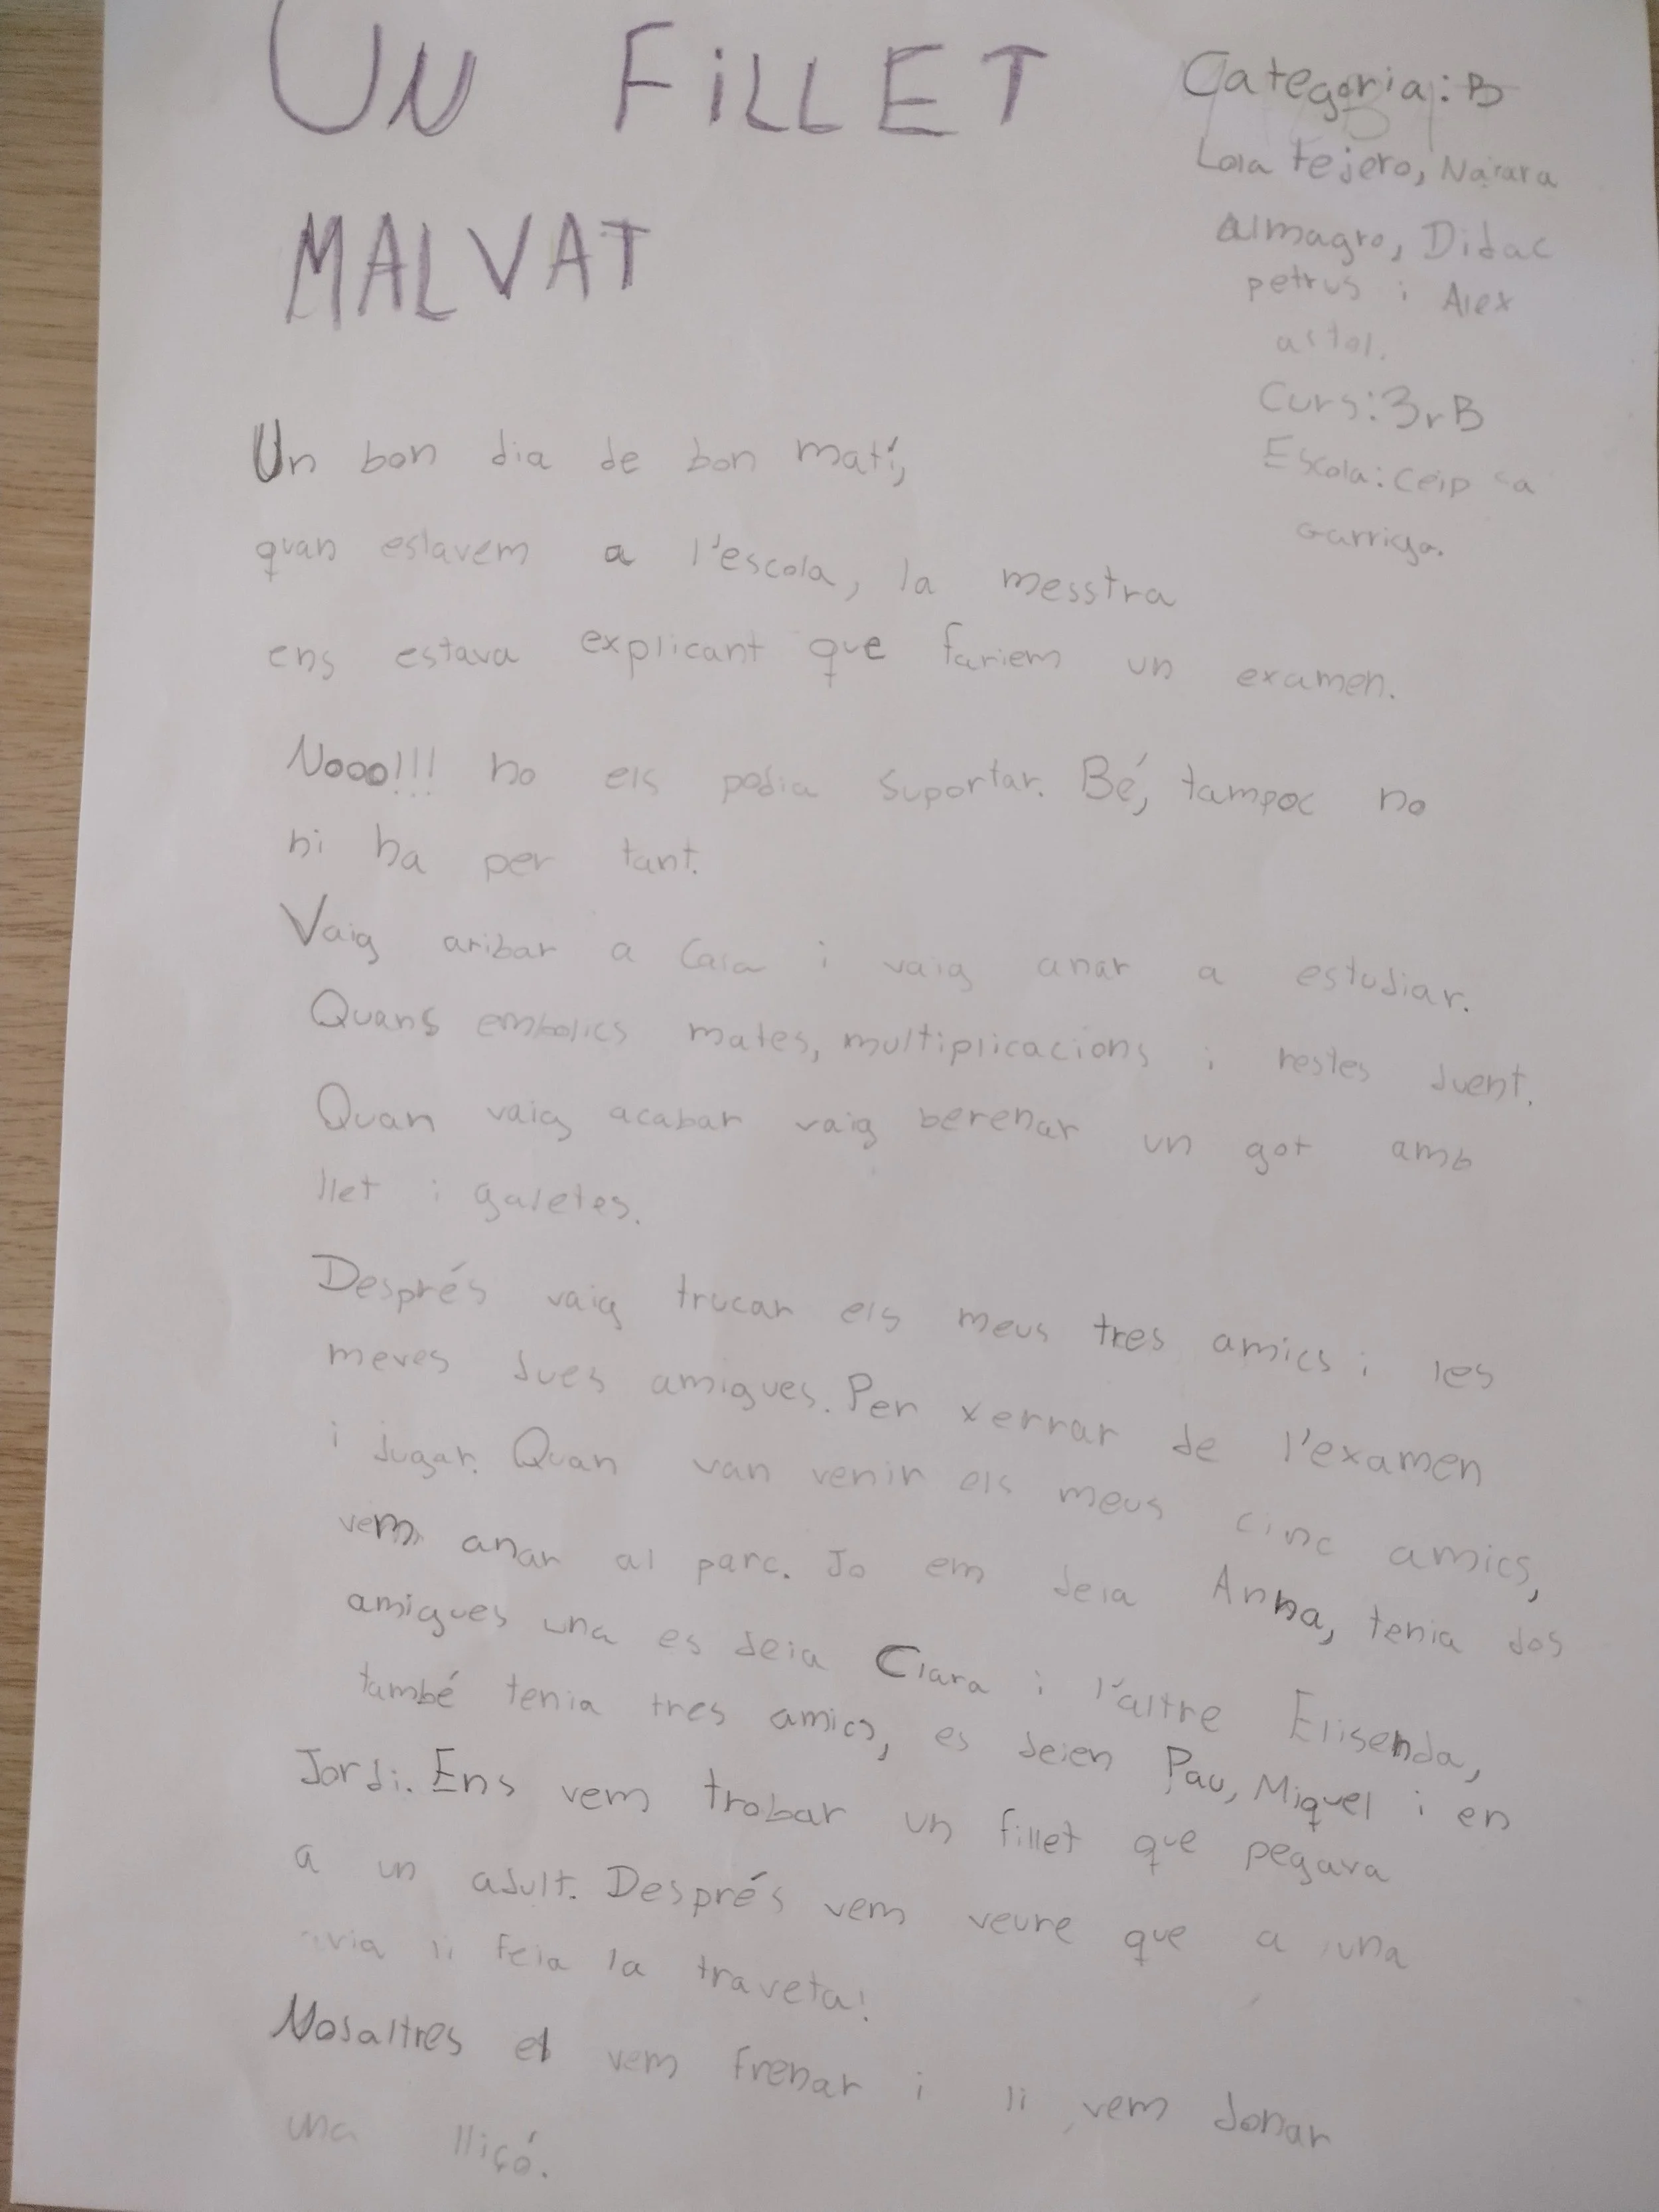 UN FiLLET
MALVAT
Categoria: B
Lola tejero, Naiara
Almagro, Didac
petrus i Alex
astol.
Curs: 3r B
Escola: Ceip sa
Garriga.
Un bon dia de bon matí,
quan estavem a l'escola, la messtra
ens estava explicant que fariem un examen.
Nooo!!! no els podia suportar. Bé, tampoc no
hi ha per tant.
Vaig aribar a casa i vaig anar a estudiar.
Quans embolics mates, multiplicacions i restes duent.
Quan vaig acabar vaig berenar un got amb
llet i galetes.
Després vaig trucar els meus tres amics i les
meves dues amigues. Per xerrar de l'examen
i jugar. Quan van venir els meus cinc amics,
vem anar al parc. Jo em deia Anna, tenia dos
amigues una es deia Clara i l'altre Elisenda,
també tenia tres amics, es deien Pau, Miquel i en
Jordi. Ens vem trobar un fillet que pegava
a un adult. Després vem veure que a una
avia li feia la traveta!
Nosaltres el vem frenar i li vem donar
una lliçó.